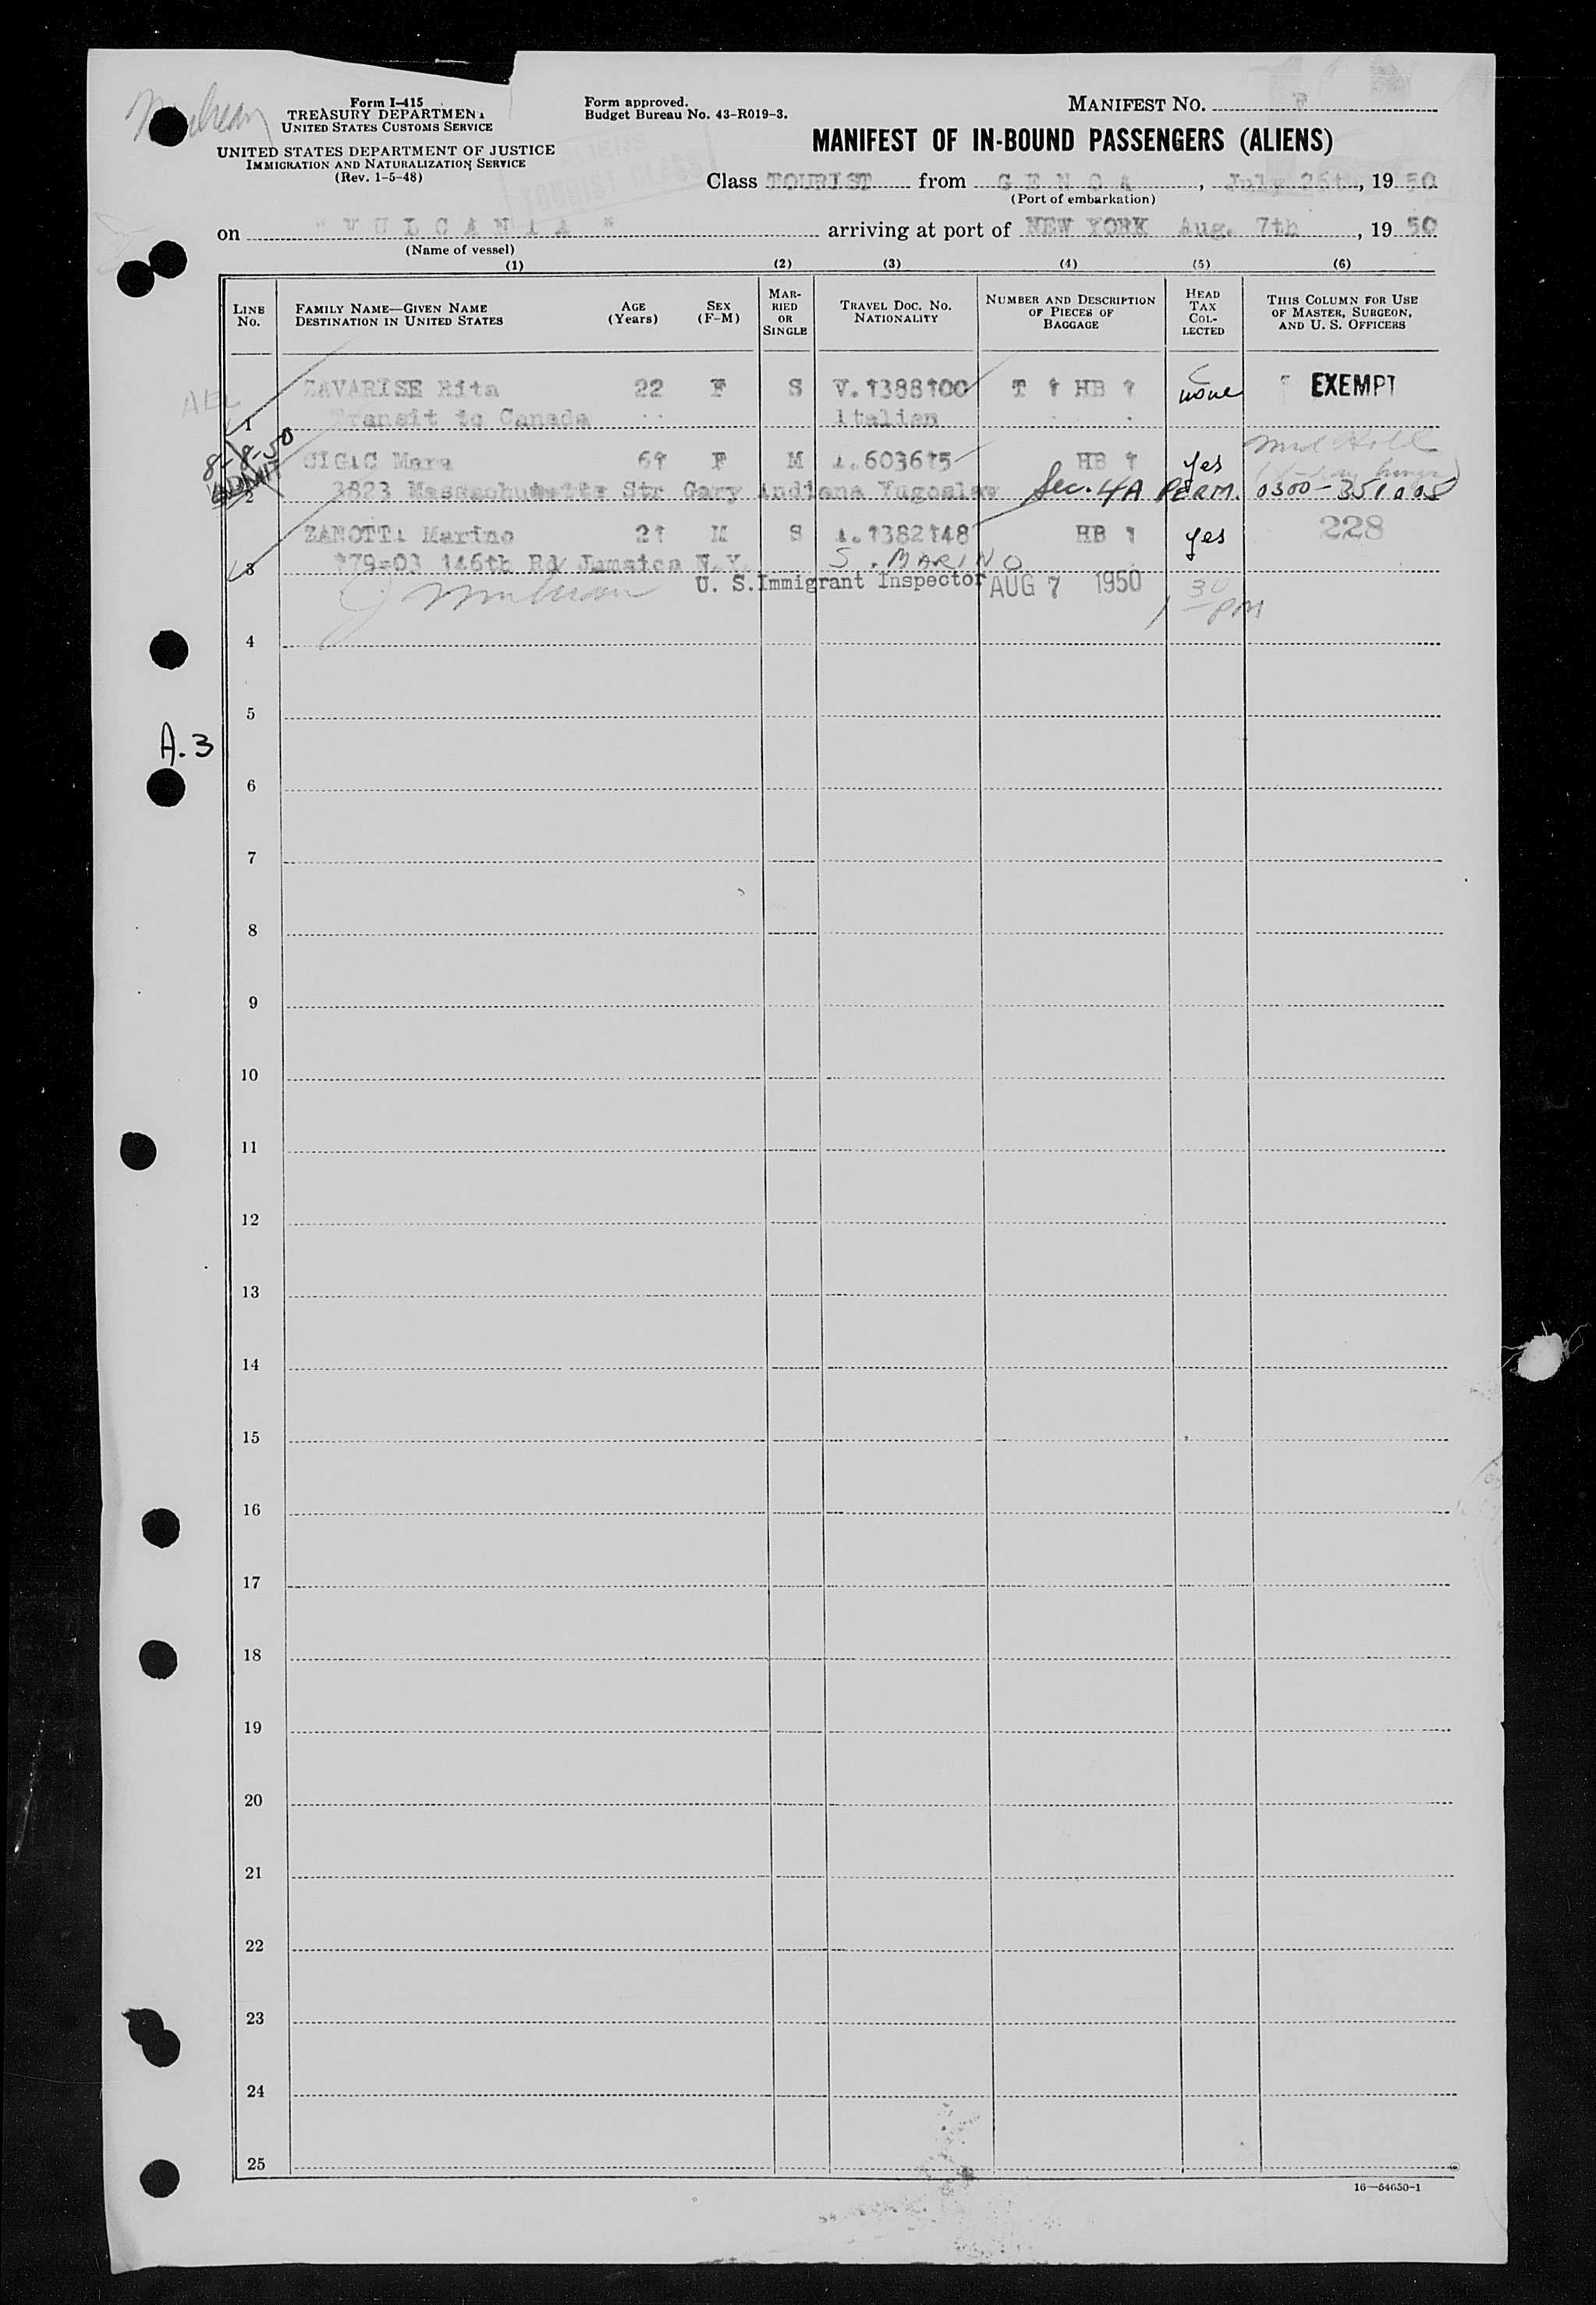 Form I-415
TREASURY DEPARTMENT
UNITED STATES CUSTOMS SERVICE
UNITED STATES DEPARTMENT OF JUSTICE
IMMIGRATION AND NATURALIZATION SERVICE
(Rev. 1-5-48)
Form approved.
Budget Bureau No. 43-R019-3.
MANIFEST NO. F
MANIFEST OF IN-BOUND PASSENGERS (ALIENS)
ALIENS
TOURIST CLASS
Class TOURIST from GENOA, July 26t, 1950
(Port of embarkation)
on "VULCANIA" arriving at port of NEW YORK Aug. 7th, 1950
(Name of vessel)
(1) (2) (3) (4) (5) (6)
LINE No. FAMILY NAME—GIVEN NAME DESTINATION IN UNITED STATES AGE (Years) SEX (F-M) MARRIED OR SINGLE TRAVEL DOC. NO. NATIONALITY NUMBER AND DESCRIPTION OF PIECES OF BAGGAGE HEAD TAX COLLECTED THIS COLUMN FOR USE OF MASTER, SURGEON, AND U. S. OFFICERS
ZAVARISE Rita 22 F S V.1388100 T 1 HB 1 none EXEMPT
1 Transit to Canada Italian
8-8-50 CIGIC Mara 61 F M I.603615 HB 1 yes
ADMIT 2 3823 Massachusetts Str Gary Indiana Yugoslav Sec. 4A PERM. 0300-351005
ZANOTTI Marino 21 M S I.1382148 HB 1 yes 228
3 179-03 146th Rd Jamaica N.Y. S. MARINO
U. S. Immigrant Inspector AUG 7 1950 1 30 PM
4
5
A.3
6
7
8
9
10
11
12
13
14
15
16
17
18
19
20
21
22
23
24
25
16—54650-1